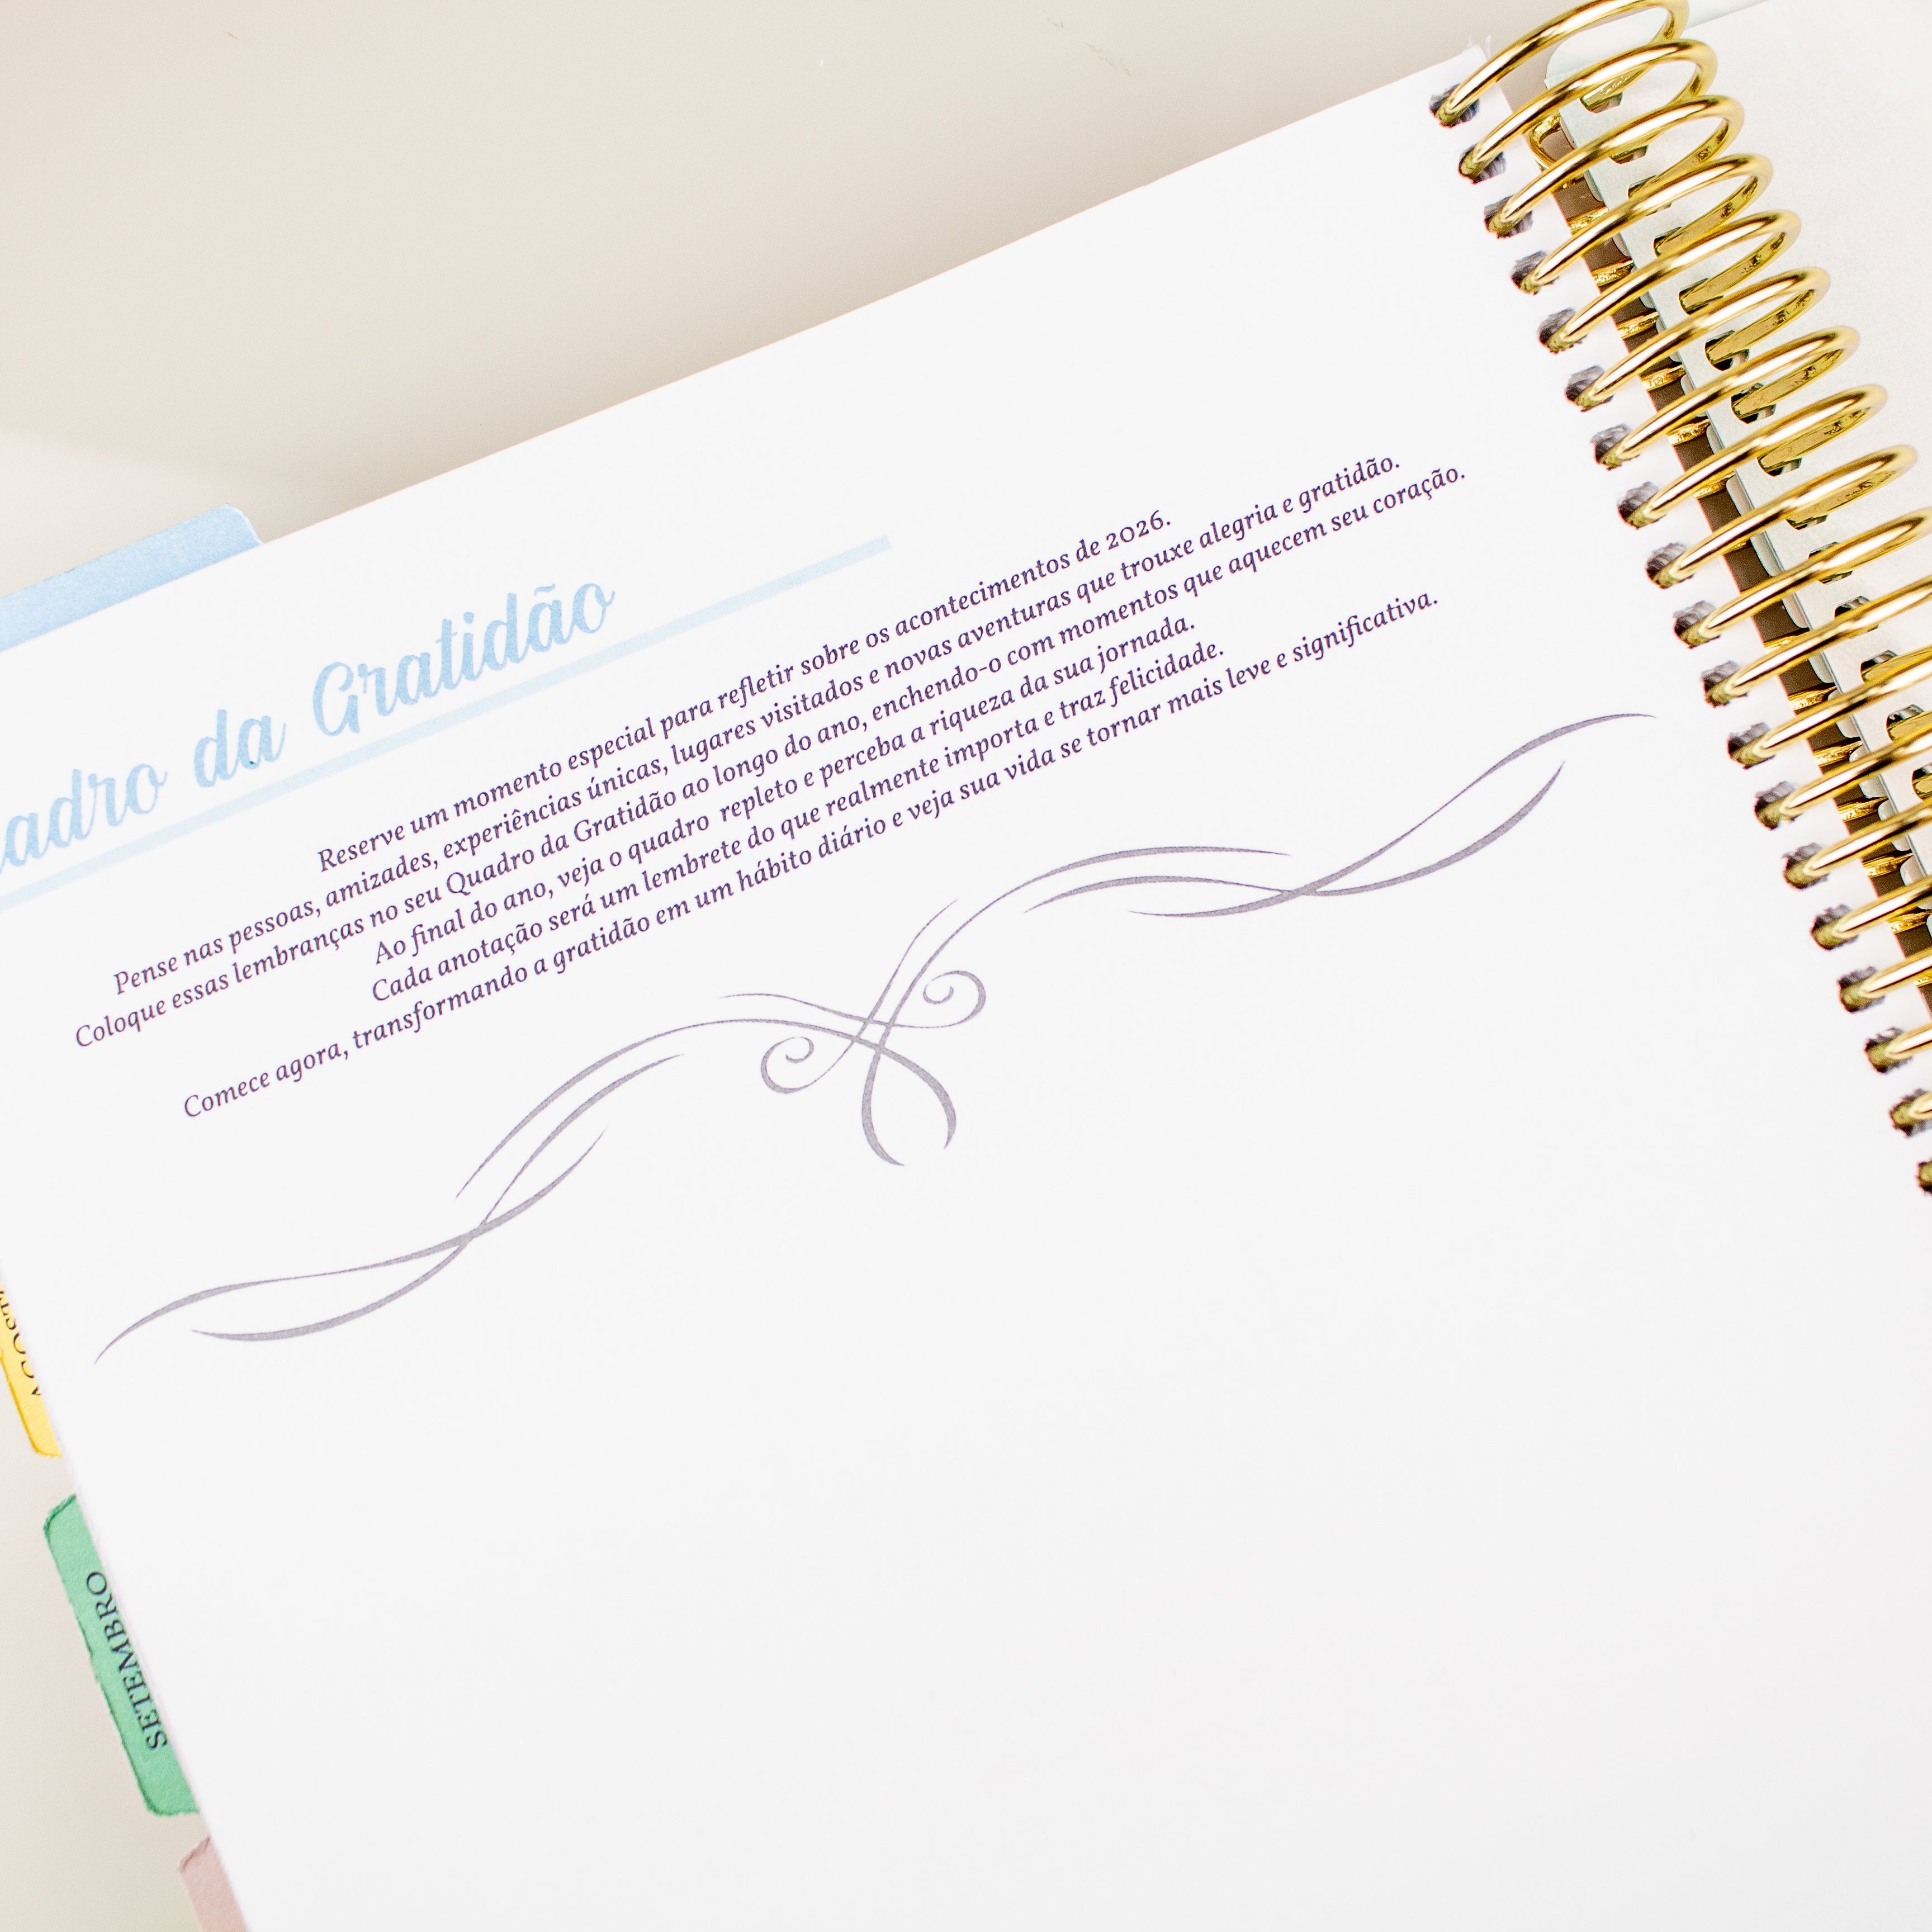 da Gratidão
Reserve um momento especial para refletir sobre os acontecimentos de 2026.
Pense nas pessoas, amizades, experiências únicas, lugares visitados e novas aventuras que trouxe alegria e gratidão.
Coloque essas lembranças no seu Quadro da Gratidão ao longo do ano, enchendo-o com momentos que aquecem seu coração.
Ao final do ano, veja o quadro repleto e perceba a riqueza da sua jornada.
Cada anotação será um lembrete do que realmente importa e traz felicidade.
Comece agora, transformando a gratidão em um hábito diário e veja sua vida se tornar mais leve e significativa.
SETEMBRO